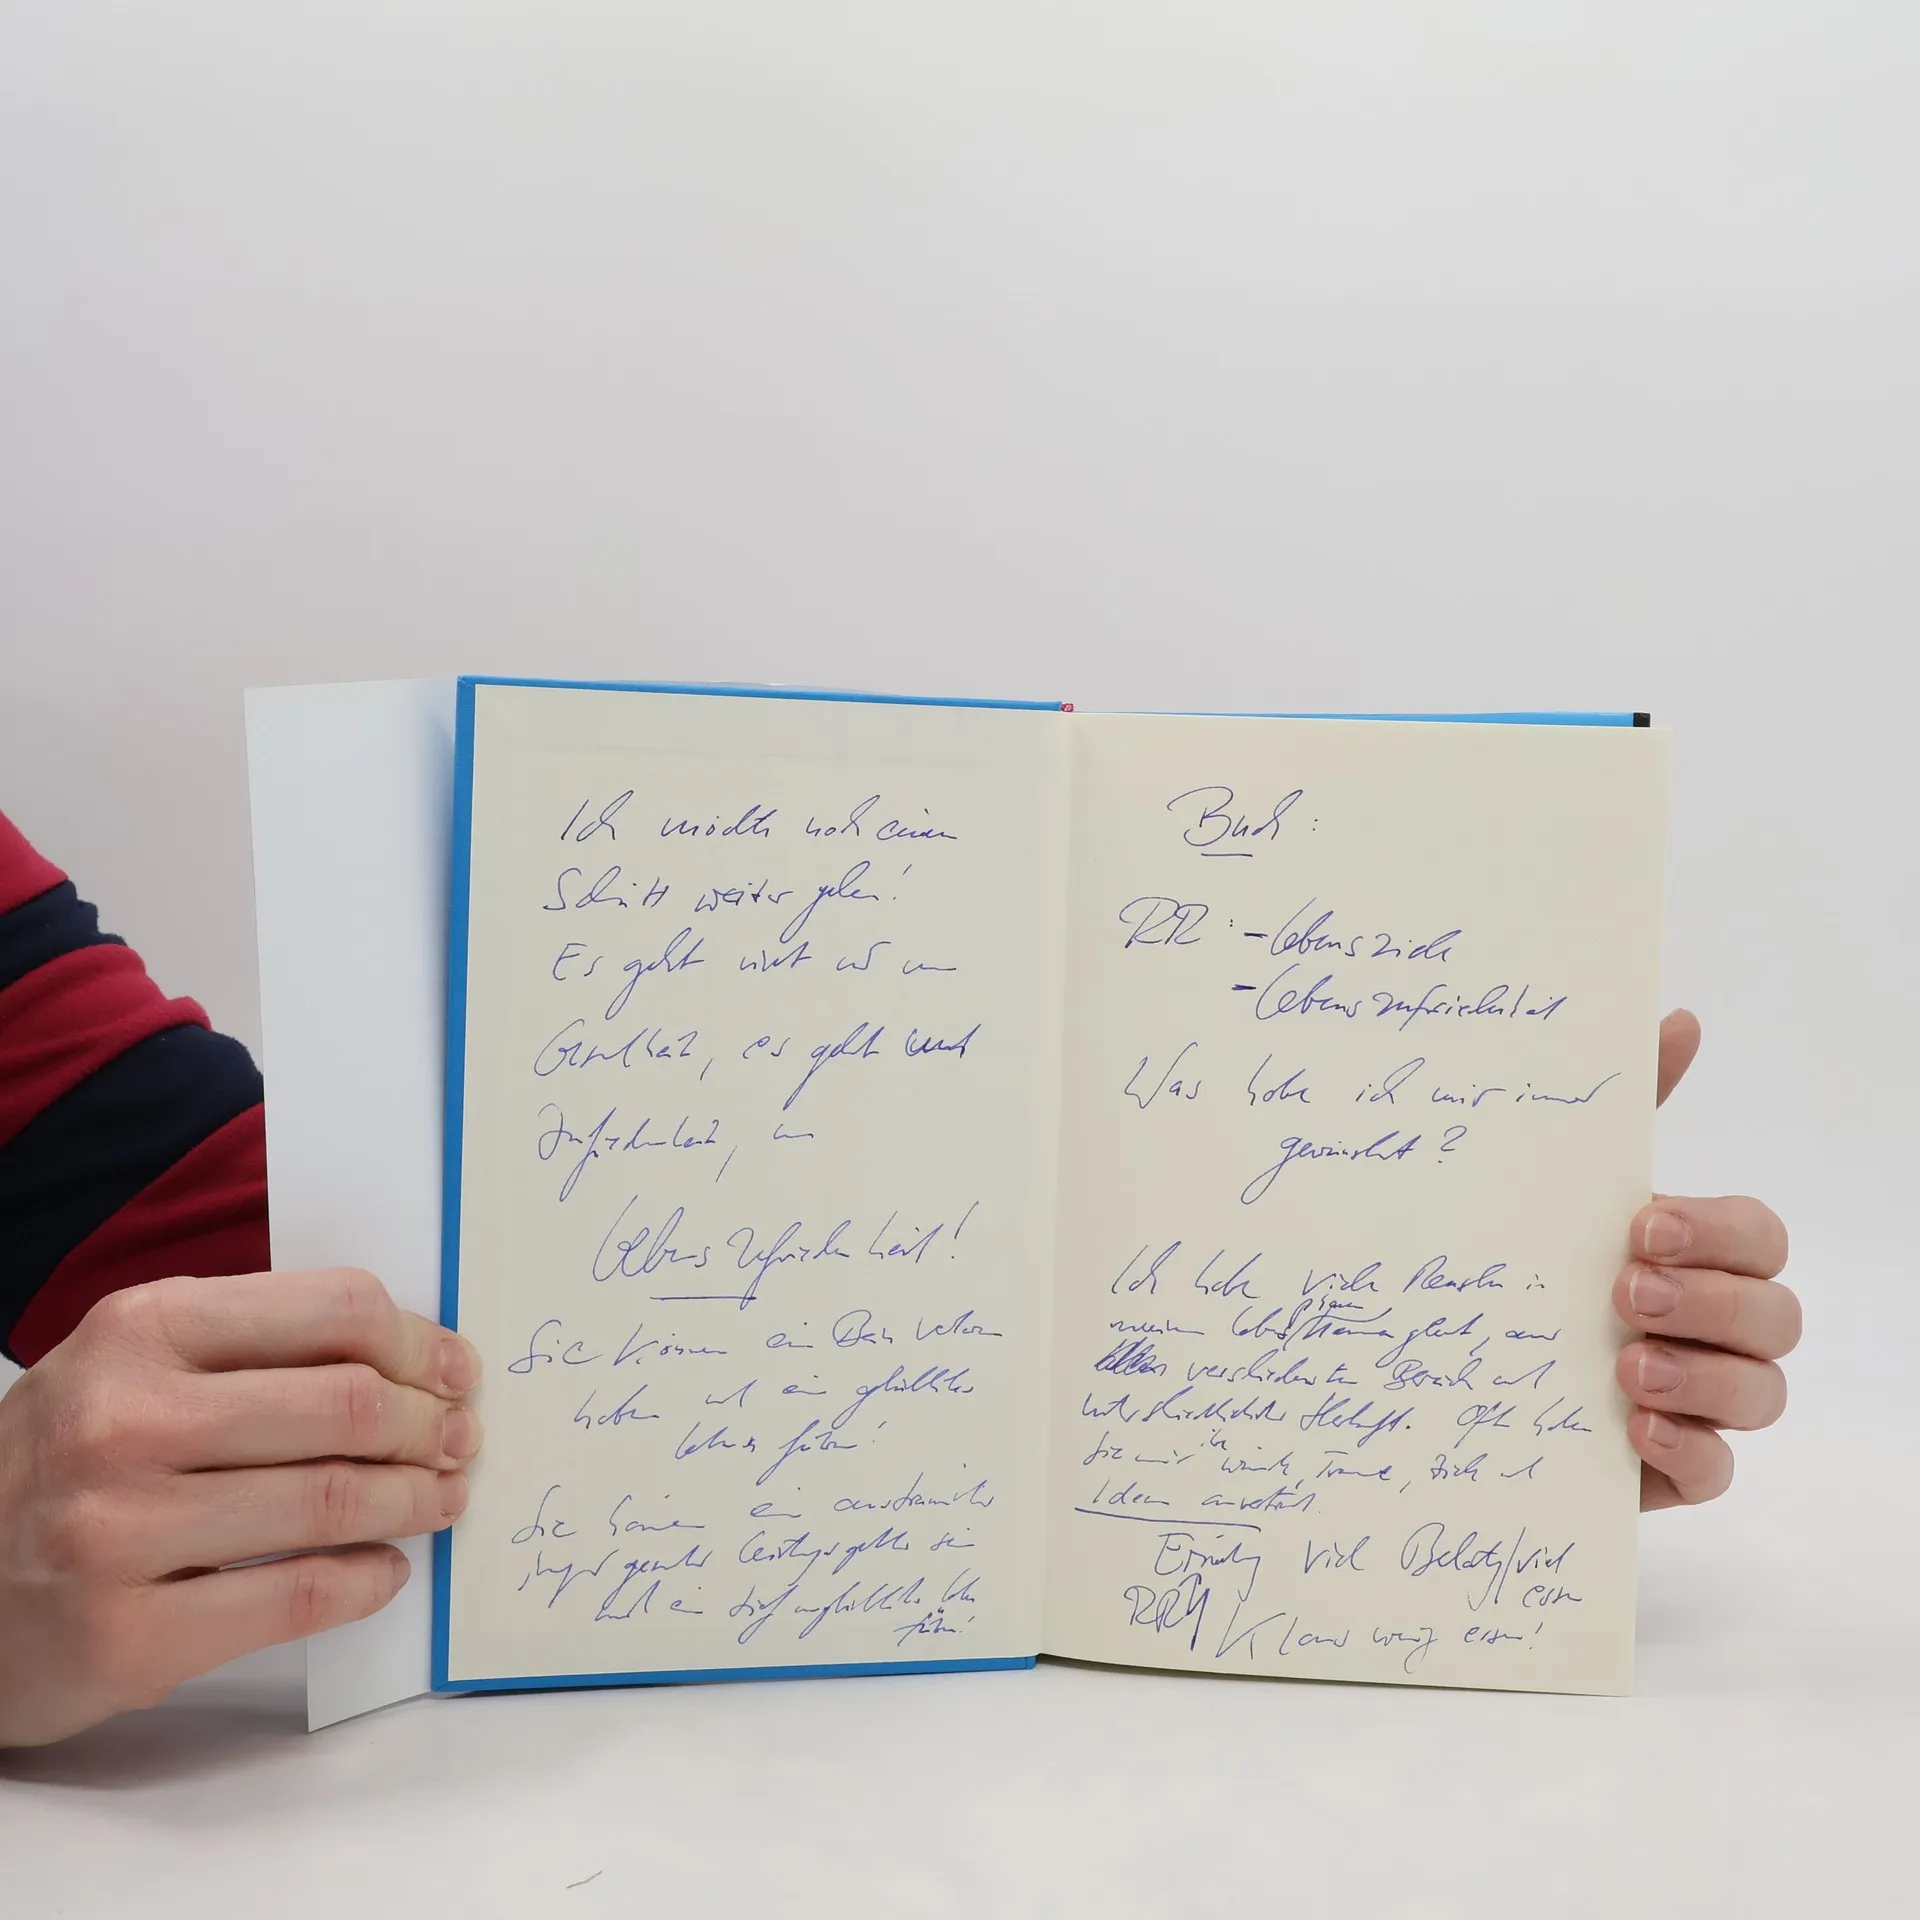 Ich möchte noch einen
Schritt weiter gehen!
Es geht nicht nur um
Gesundheit, es geht um
Zufriedenheit, um
Lebenszufriedenheit!
Sie können ein Bein verloren
haben und ein glückliches
Leben führen!
Sie können ein austrainierter
junger gesunder Leistungssportler sein
und ein tief unglückliches Leben
führen!
Buch:
RR: - Lebensziele
- Lebenszufriedenheit
Was habe ich mir immer
gewünscht?
Ich habe viele Menschen in
meinem Leben, aus
verschiedensten Bereichen und
unterschiedlichster Herkunft. Oft haben
Sie mir ihre Wünsche, Träume, Ziele und
Ideen anvertraut.
Ernährung viel Belastg/viel
essen
RR
Klaus wenig essen!